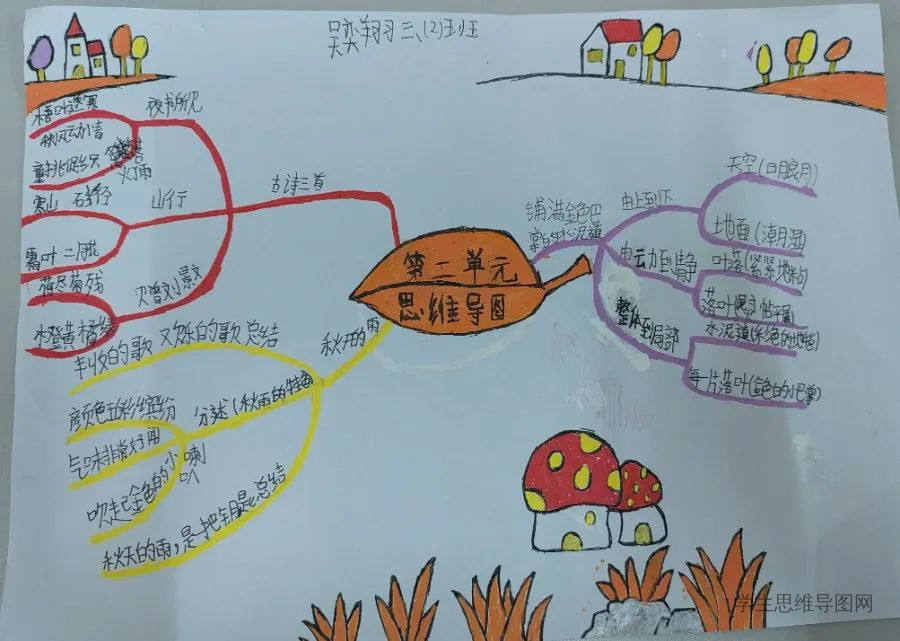 吴奕翔 三、(2)班
第二单元
思维导图
古诗三首
夜书所见
梧叶送寒
秋风动情
童挑促织
山行
寒山 石径
霜叶 二月花
赠刘景文
荷尽菊残
橙黄橘绿
秋天的雨
丰收的歌 欢乐的歌 总结
分述(秋雨的特点)
颜色五彩缤纷
气味非常好闻
吹起金色的小喇
叭
秋天的雨,是一把钥匙 总结
铺满金色巴
掌的水泥道
由上到下
天空(明朗)
地面(潮湿)
由动到静
叶落(紧紧地粘)
落叶(平展)
整体到局部
水泥道(彩色的地毯)
每一片落叶(金色的小巴掌)
学生思维导图网